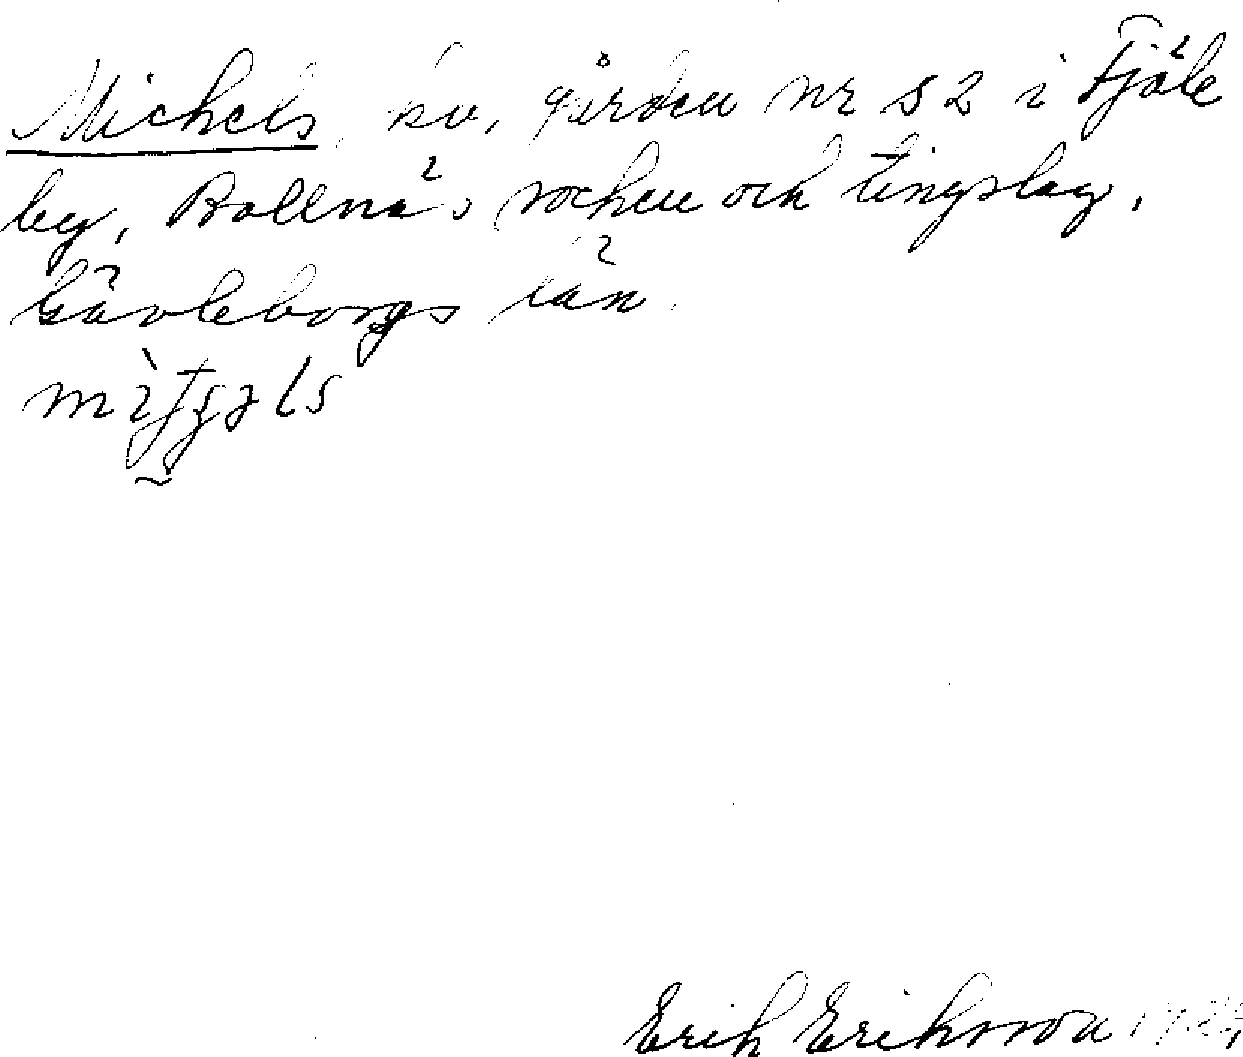 Michels, sv, gården nr 52 i Fjäle
by, Bollnäs socken och tingslag,
Gävleborgs län.
Erik Eriksson